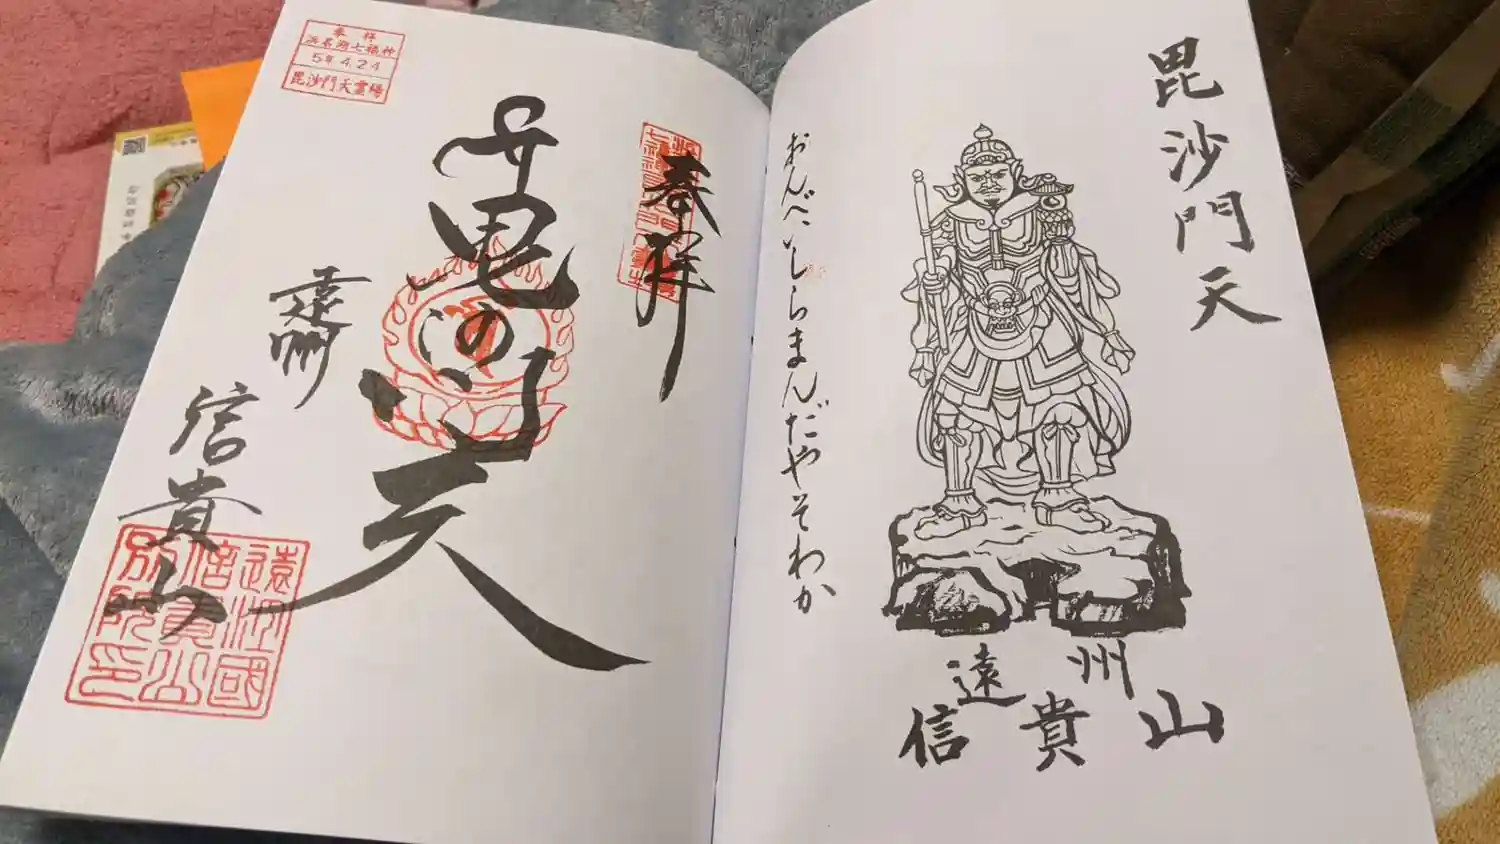 毘沙門天
おんべいしらまんだやそわか
遠州
信貴山
奉拝
毘沙門天
遠州
信貴山
奉拝
浜名湖七福神
5年4.24
毘沙門天霊場
遠江國
信貴山
別院印